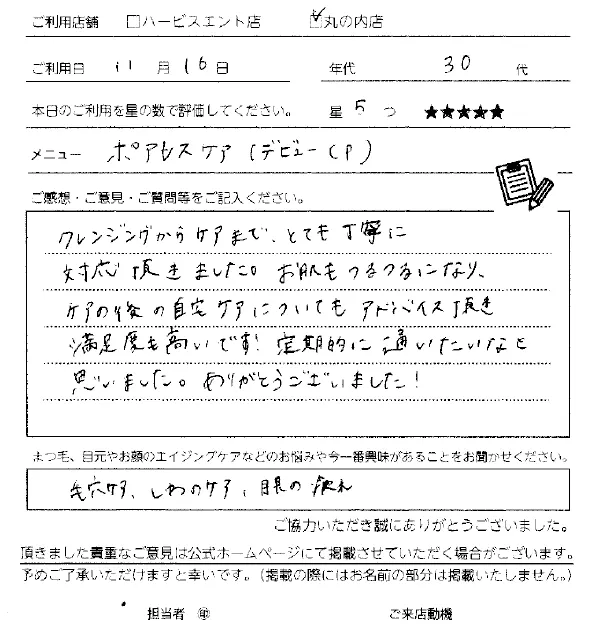 ご利用店舗 □ハービスエント店 ☑丸の内店
ご利用日 11月16日 年代 30代
本日のご利用を星の数で評価してください。 星5つ ★★★★★
メニュー ポアレスケア(デビューCP)
ご感想・ご意見・ご質問等をご記入ください。
クレンジングからケアまで、とても丁寧に
対応頂きました。お肌もつるつるになり、
ケアの後の自宅ケアについてもアドバイス頂き
満足度も高いです!定期的に通いたいなと
思いました。ありがとうございました!
まつ毛、目元やお顔のエイジングケアなどのお悩みや今一番興味があることをお聞かせください。
毛穴ケア、しわのケア、目の疲れ
ご協力いただき誠にありがとうございました。
頂きました貴重なご意見は公式ホームページにて掲載させていただく場合がございます。
予めご了承いただけますと幸いです。(掲載の際にはお名前の部分は掲載いたしません。)
担当者 ㊞ ご来店動機